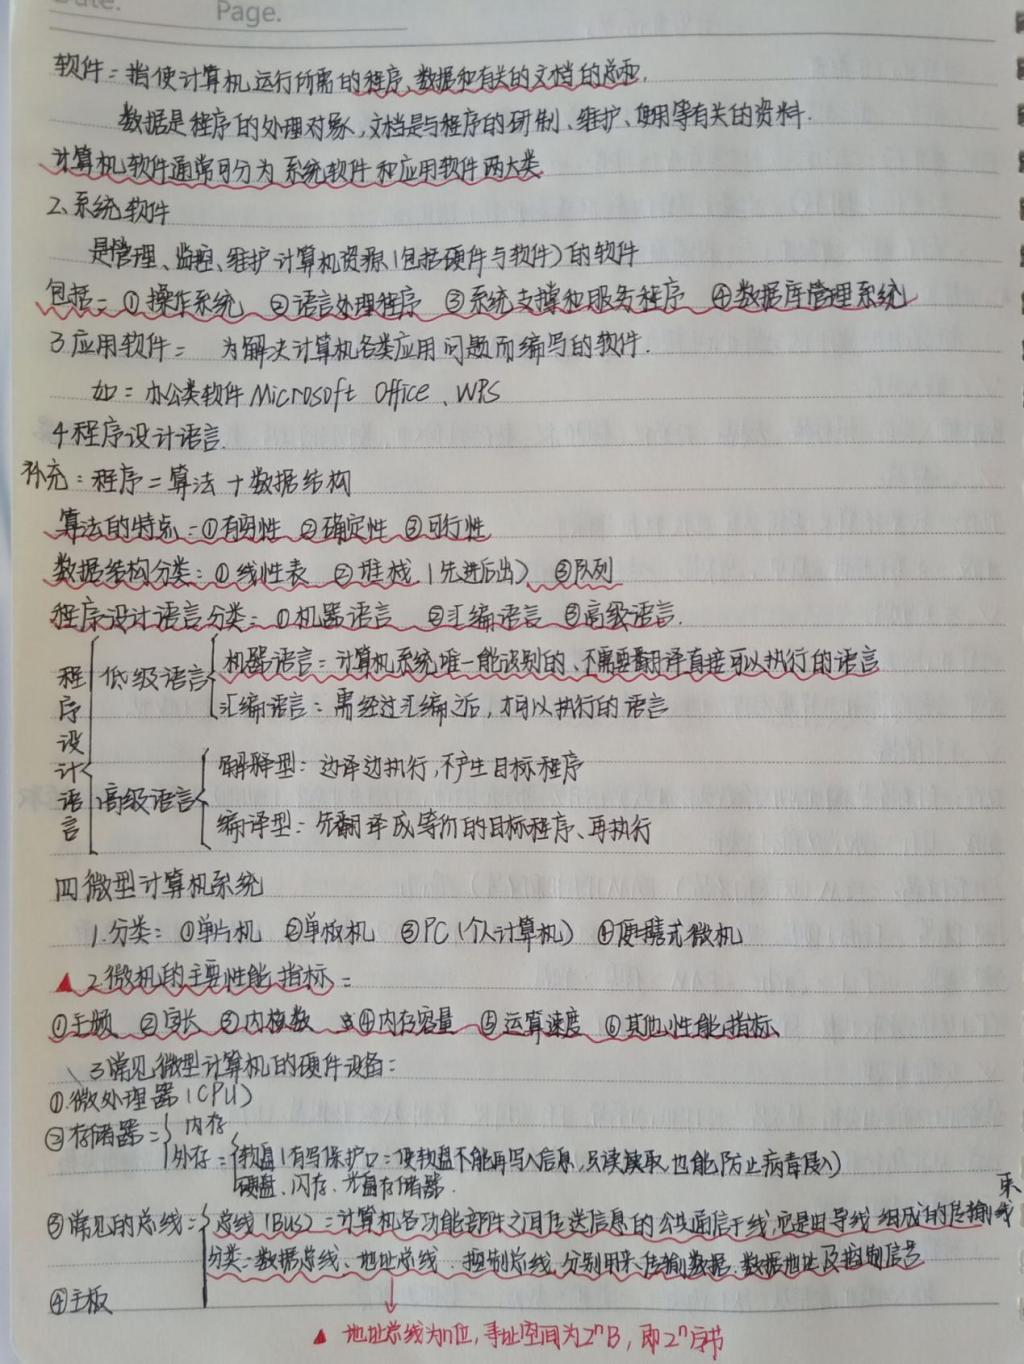 Date.
Page.
软件：指使计算机运行所需的程序、数据和有关的文档的总和.
数据是程序的处理对象，文档是与程序的研制、维护、使用等有关的资料.
计算机软件通常可分为系统软件和应用软件两大类
2、系统软件
是管理、监控、维护计算机资源(包括硬件与软件)的软件
包括：①操作系统 ②语言处理程序 ③系统支撑和服务程序 ④数据库管理系统
3应用软件： 为解决计算机各类应用问题而编写的软件.
如：办公类软件Microsoft Office、WPS
4程序设计语言.
补充：程序=算法+数据结构
算法的特点：①有穷性 ②确定性 ③可行性
数据结构分类：①线性表 ②堆栈(先进后出) ③队列
程序设计语言分类：①机器语言 ②汇编语言 ③高级语言.
程序设计语言
低级语言
机器语言：计算机系统唯一能识别的、不需要翻译直接可以执行的语言
汇编语言：需经过汇编之后，才可以执行的语言
高级语言
解释型：边译边执行，不产生目标程序
编译型：先翻译成等价的目标程序、再执行
四微型计算机系统
1.分类：①单片机 ②单板机 ③PC(个人计算机) ④便携式微机
▲2微机的主要性能指标：
①主频 ②字长 ③内核数 ④内存容量 ⑤运算速度 ⑥其他性能指标、
、3常见微型计算机的硬件设备：
①.微处理器(CPU)
②存储器：
内存
外存：
软盘(有写保护口：使软盘不能再写入信息，只读读取，也能防止病毒侵入)
硬盘、闪存、光盘存储器.
③常见的总线：
总线(Bus)：计算机各功能部件之间传送信息的公共通信干线，它是由导线组成的传输线束
分类：数据总线、地址总线、控制总线，分别用来传输数据、数据地址及控制信号
④主板
▲ 地址总线为n位，寻址空间为2ⁿB，即2ⁿ字节